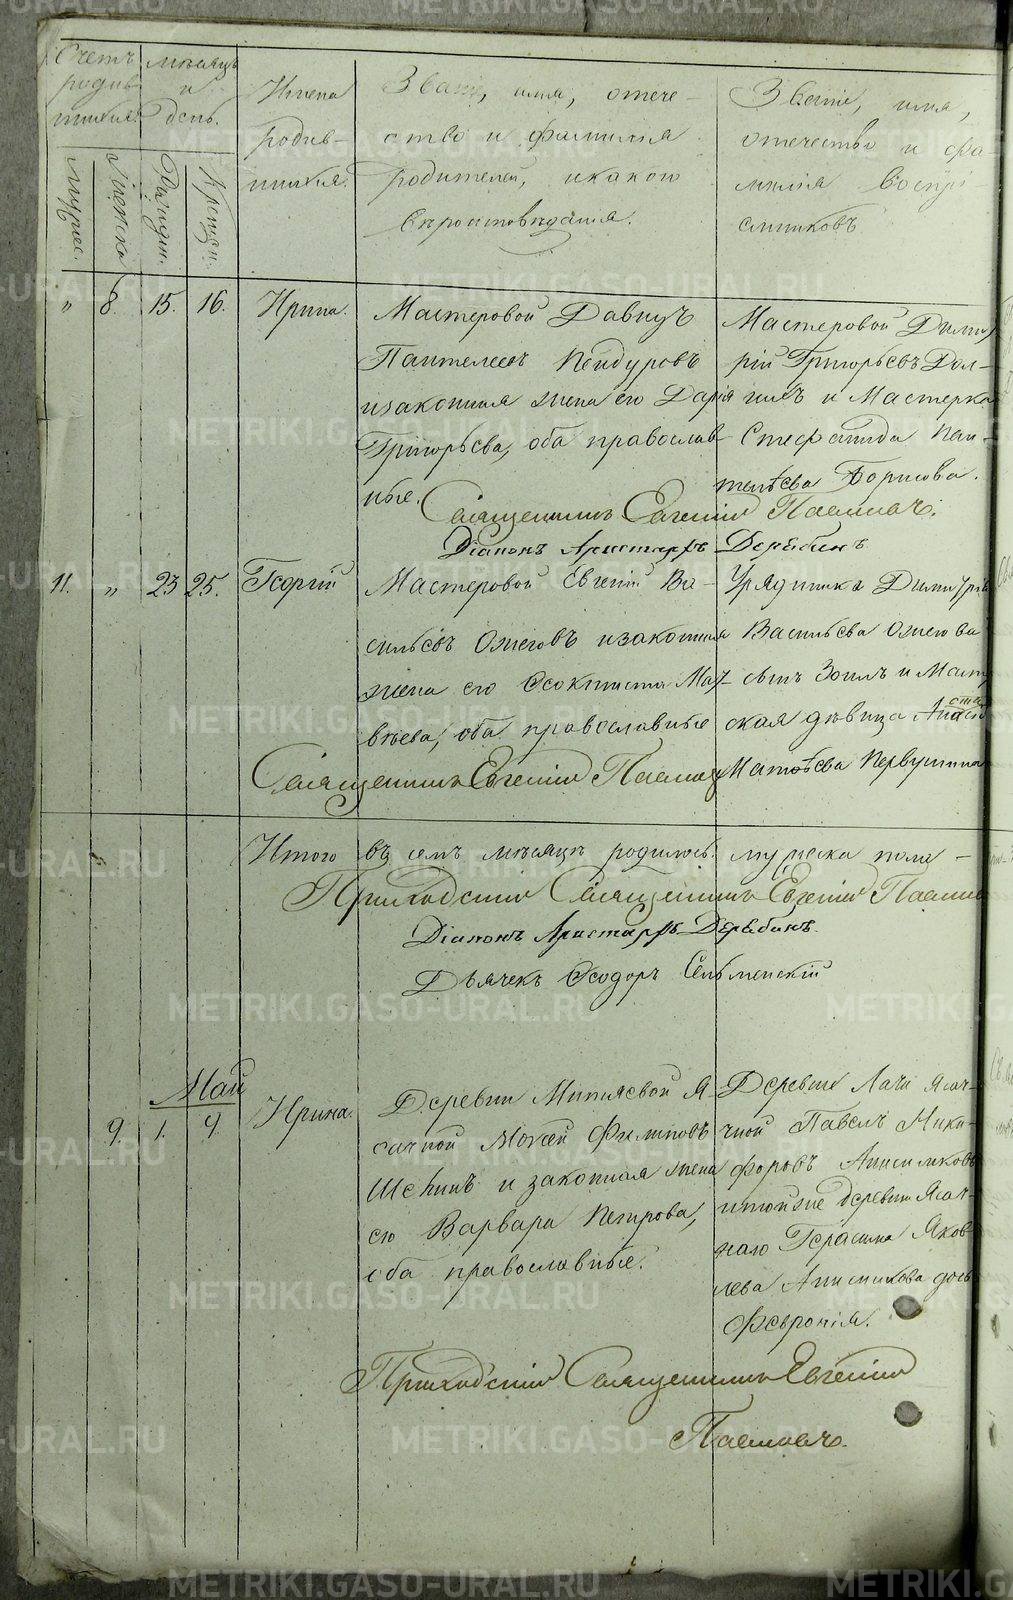 Счетъ родив-шихся.
Мѣсяцъ и день.
Имена родив-шихся.
Званіе, имя, отече-
ство и фамилія
родителей, и какого
вѣроисповѣданія.
Званіе, имя,
отечество и фа-
милія воспрі-
емниковъ
Мужес.
Женска
Рожден.
Крещен.
" 8. 15. 16. Ирина.
Мастеровой Давидъ
Пантелеевъ Кендуровъ
и законная жена его Дарія
Григорьева, оба православ-
ные.
Мастеровой Димит
рій Григорьевъ Дол-
гихъ и Мастерка
Стефанида Пан-
телѣева Борисова.
Священникъ Евгеній
Діаконъ Аристархъ Дерябинъ
11. " 23 25. Георгій
Мастеровой Евгеній Ва-
сильевъ Ожеговъ и законная
жена его Ѳеоктиста Мат-
вѣева, оба православные
Урядника Димитрія
Васильева Ожегова
сынъ Зоилъ и Маст
ская дѣвица Анаст
Матвѣева Первушина
Священникъ Евгеній
Итого въ семъ мѣсяцѣ родилось. мужеска пола –
Приходскій Священникъ Евгеній
Діаконъ Аристархъ Дерябинъ.
Дьячекъ Ѳеодоръ
Май
9. 1. 4. Ирина.
Деревни Митяевой Я-
сачной Моѵсей Филиповъ
Щекинъ и законная жена
его Варвара Петрова,
оба православные.
Деревни Лачи Ясач-
ной Павелъ Ники-
форовъ Анисимковъ
и той же деревни Ясач-
наго Герасима Яков-
лева Анисимкова дочь
Февронія.
Приходскій Священникъ Евгеній
METRIKI.GASO-URAL.RU